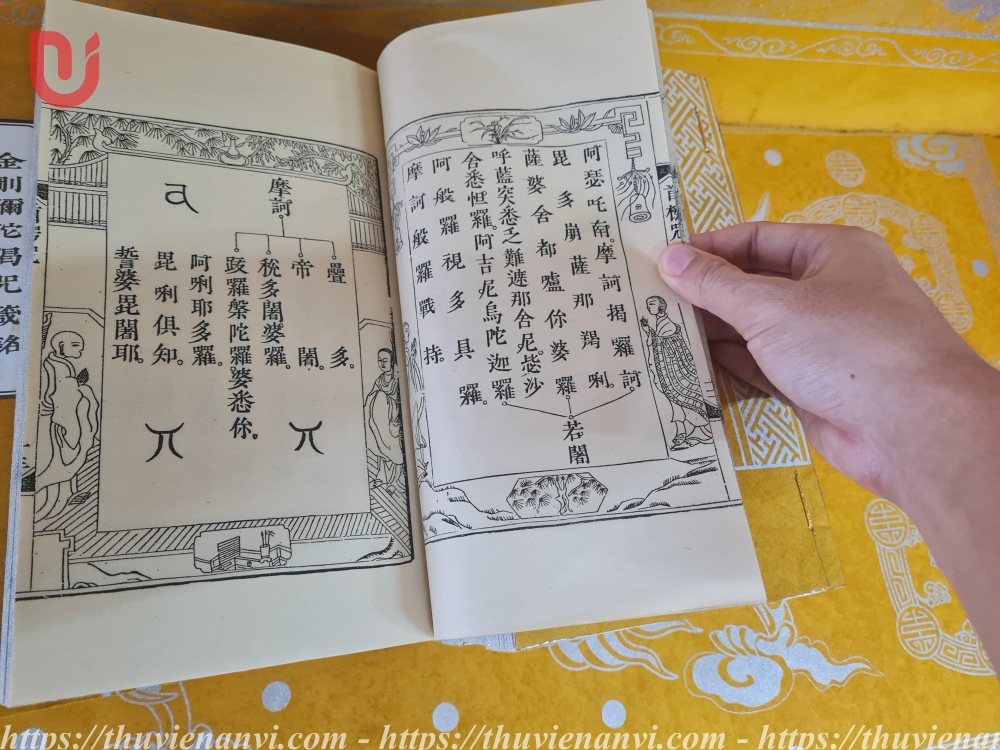 阿瑟吒南。摩訶揭羅訶
毘多崩薩那羯唎。
薩婆舍都嚧你婆羅
若闍
呼藍突悉乏難遮那舍尼。毖沙
舍悉怛羅。阿吉尼烏陀迦羅
阿般羅視多具羅。
摩訶般羅戰持。
摩訶
疊多。
帝闍。
稅多闍婆羅。
跋羅槃陀羅。婆悉你。
阿唎耶多羅。
毘唎俱知。
誓婆毘闍耶。
https://thuvienanvi.com - https://thuvienanvi.com - https://thuvienan